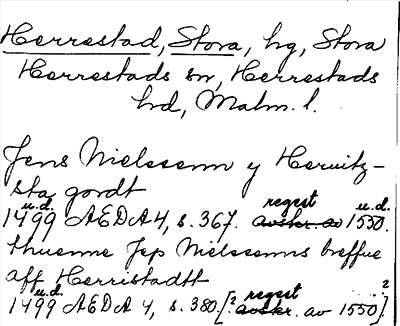 Herrestad, Stora, hg, Stora
Herrestads sn, Herrestads
hd, Malm. l.
Jens Nielssenn y Herwitz-
sta gordt
u.d. regest u.d.
1499 AEDA 4, s. 367. avskr. av 1550.
thuenne Jep Nielssenns breffue
aff Herristadtt
u.d. regest ?
1499 AEDA 4, s. 380 [? avskr. av 1550]